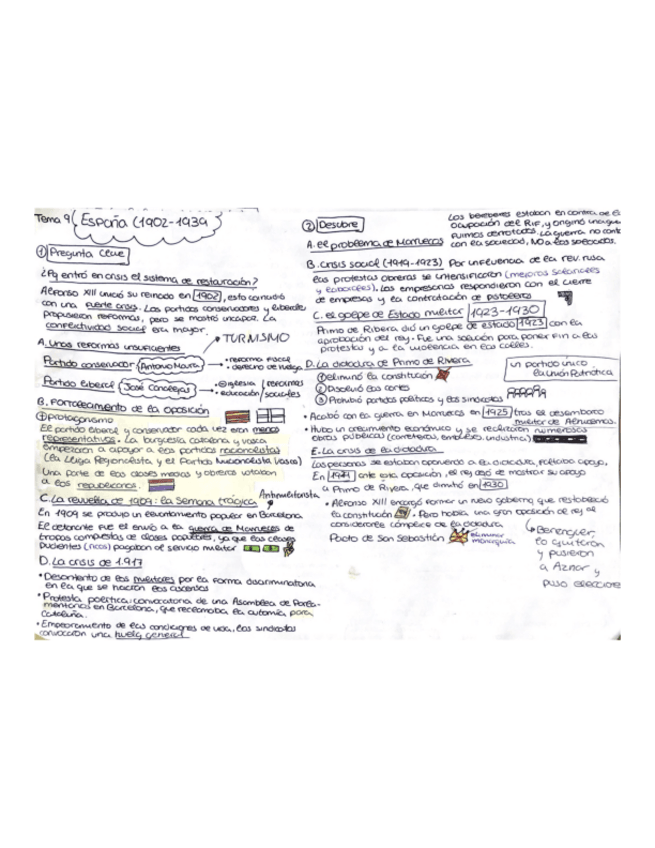 Tema 9 España (1902-1939)
① Pregunta clave
¿Pq entró en crisis el sistema de restauración?
Alfonso XIII inició su reinado en 1902, esto coincidió
con una fuerte crisis. Los partidos conservadores y liberales
propusieron reformas, pero se mostró incapaz. La
conflictividad social era mayor.
→ TURNISMO
A. Unas reformas insuficientes
Partido conservador (Antonio Maura) → • reforma fiscal
• derecho de huelga
Partido liberal (José Canalejas) → • iglesia
• educación / reformas sociales
B. Fortalecimiento de la oposición
① protagonismo
El partido liberal y conservador cada vez eran menos
representativos. La burguesía catalana y vasca
empezaron a apoyar a los partidos nacionalistas
(La Lliga Regionalista, y el Partido Nacionalista Vasco)
Una parte de las clases medias y obreros votaban
a los republicanos.
C. La revuelta de 1909: la Semana trágica
Antimilitarista
En 1909 se produjo un levantamiento popular en Barcelona
El detonante fue el envío a la guerra de Marruecos de
tropas compuestas de clases populares, ya que las clases
pudientes (ricos) pagaban el servicio militar
D. La crisis de 1.917
• Descontento de los militares por la forma discriminatoria
en la que se hacían los ascensos
• Protesta política: convocatoria de una Asamblea de Parla-
mentarios en Barcelona, que reclamaba la autonomía para
Cataluña.
• Empeoramiento de las condiciones de vida, los sindicatos
convocaron una huelga general
② Descubre
Los bereberes estaban en contra de la
ocupación del Rif, y originó una
fuimos derrotados. La guerra no
con la sociedad, NO a los soldados.
A. el problema de Marruecos
B. Crisis social (1919-1923) Por influencia de la rev. rusa
las protestas obreras se intensificaron (mejoras salariales
y laborales). Los empresarios respondieron con el cierre
de empresas y la contratación de pistoleros
C. el golpe de Estado militar 1923-1930
Primo de Ribera dió un golpe de estado 1923 con la
aprobación del rey. Fue una solución para poner fin a las
protestas y a la violencia en las calles.
D. La dictadura de Primo de Rivera
un partido único
la Unión Patriótica
① Eliminó la constitución
② Disolvió las cortes
③ Prohibió partidos políticos y los sindicatos
• Acabó con la guerra en Marruecos en 1925 tras el desembarco
militar de Alhucemas.
• Hubo un crecimiento económico y se realizaron numerosas
obras públicas (carreteras, embalses, industria)
E. La crisis de la dictadura
Las personas se estaban oponiendo a la dictadura, faltaba apoyo.
En ante esta oposición, el rey dejó de mostrar su apoyo
a Primo de Rivera, que dimitió en 1930
• Alfonso XIII encargó formar un nuevo gobierno que restableció
la constitución. Pero había una gran oposición al rey al
considerarle cómplice de la dictadura
Pacto de San Sebastián eliminar
monarquía
↳ Berenguer,
lo quitaron
y pusieron
a Aznar y
puso elecciones